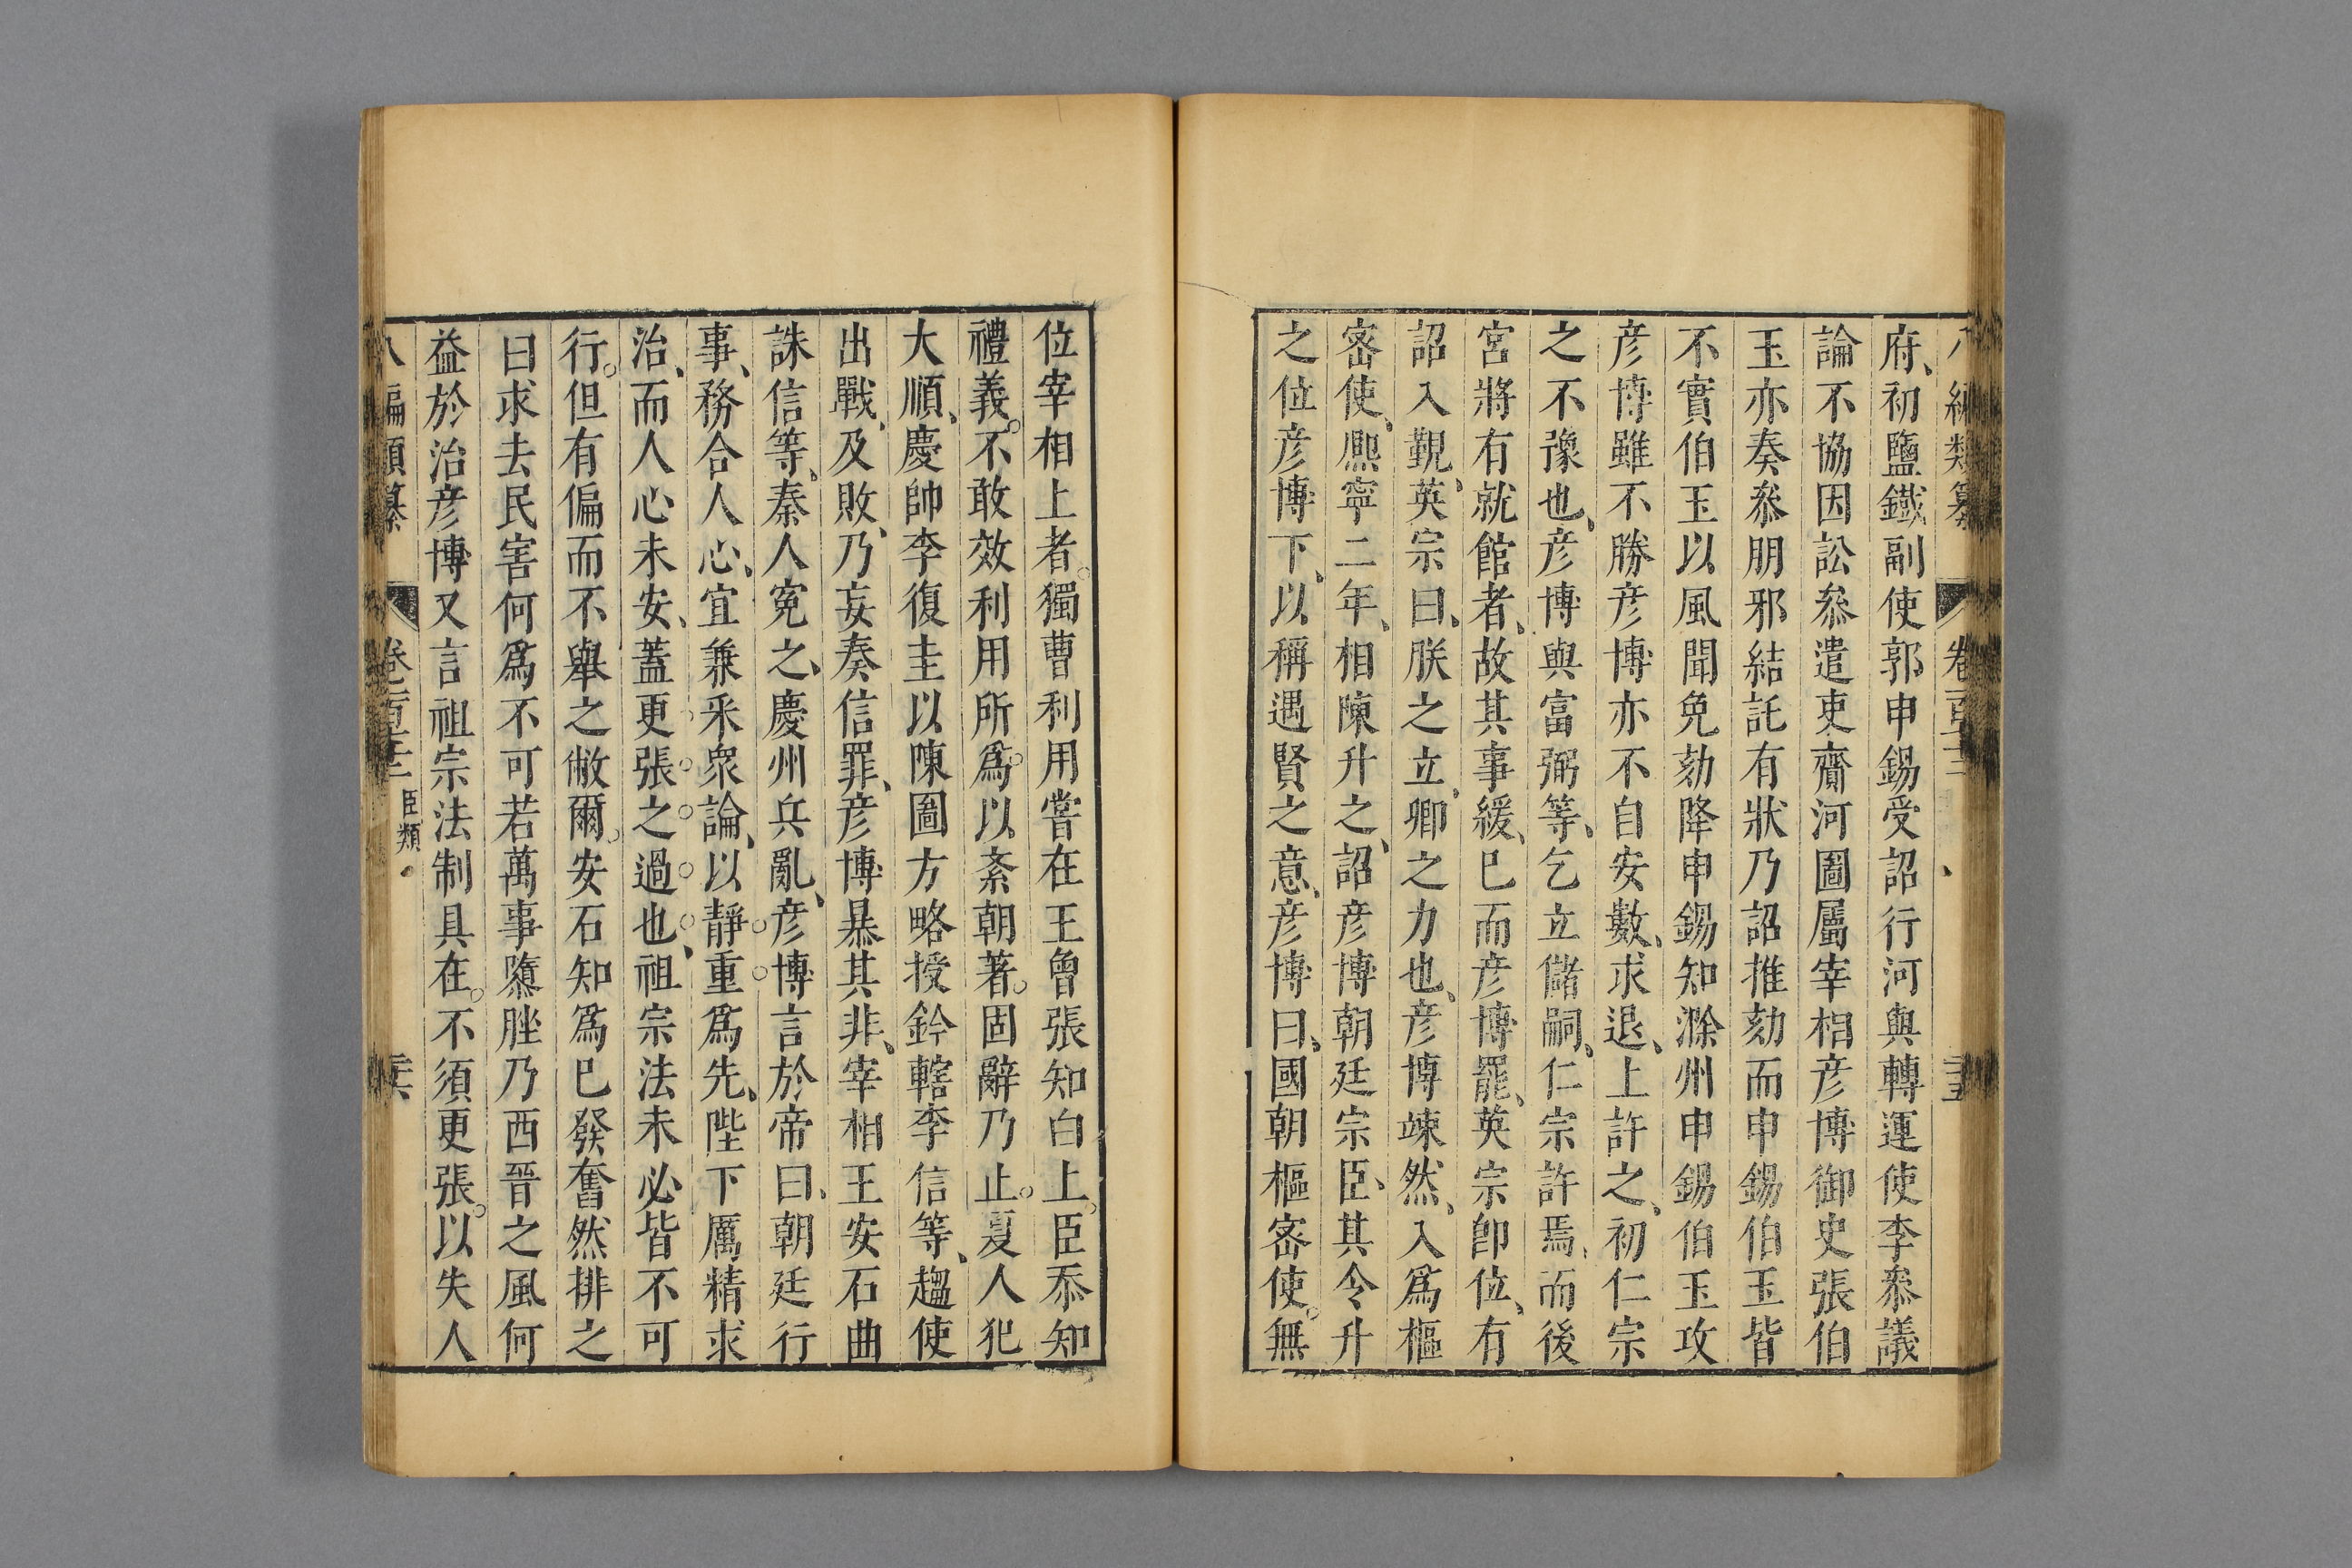 府、初鹽鐵副使郭申錫受詔行河與轉運使李叅議
論不協因訟叅遣吏齎河圖屬宰相彥博御史張伯
玉亦奏叅朋邪結託有狀乃詔推劾而申錫伯玉皆
不實伯玉以風聞免劾降申錫知滁州申錫伯玉攻
彥博雖不勝彥博亦不自安數、求退、上許之、初仁宗
之不豫也、彥博與富弼等、乞立儲嗣、仁宗許焉、而後
宮將有就館者、故其事緩、巳而彥博罷、英宗卽位、有
詔入覲、英宗曰、朕之立、卿之力也、彥博竦然、入爲樞
密使、熈寧二年、相陳升之、詔彥博朝廷宗臣、其令升
之位彥博下、以稱遇賢之意、彥博曰、國朝樞密使。無
位宰相上者。獨曹利用嘗在王曾張知白上。臣忝知
禮義。不敢效利用所爲。以紊朝著。固辭乃止。夏人犯
大順、慶帥李復圭以陳圖方略授鈐轄李信等、趨使
出戰、及敗、乃妄奏信罪、彥博暴其非、宰相王安石曲
誅信等、秦人寃之、慶州兵亂、彥博言於帝曰、朝廷行
事、務合人心、宜兼釆衆論、以靜重爲先、陛下厲精求
治、而人心未安、蓋更張之過也、祖宗法未必皆不可
行。但有偏而不舉之敝爾。安石知爲巳發奮然排之
曰求去民害何爲不可若萬事隳脞乃西晉之風何
益於治彥博又言祖宗法制具在。不須更張。以失人
八編類纂 卷 臣類